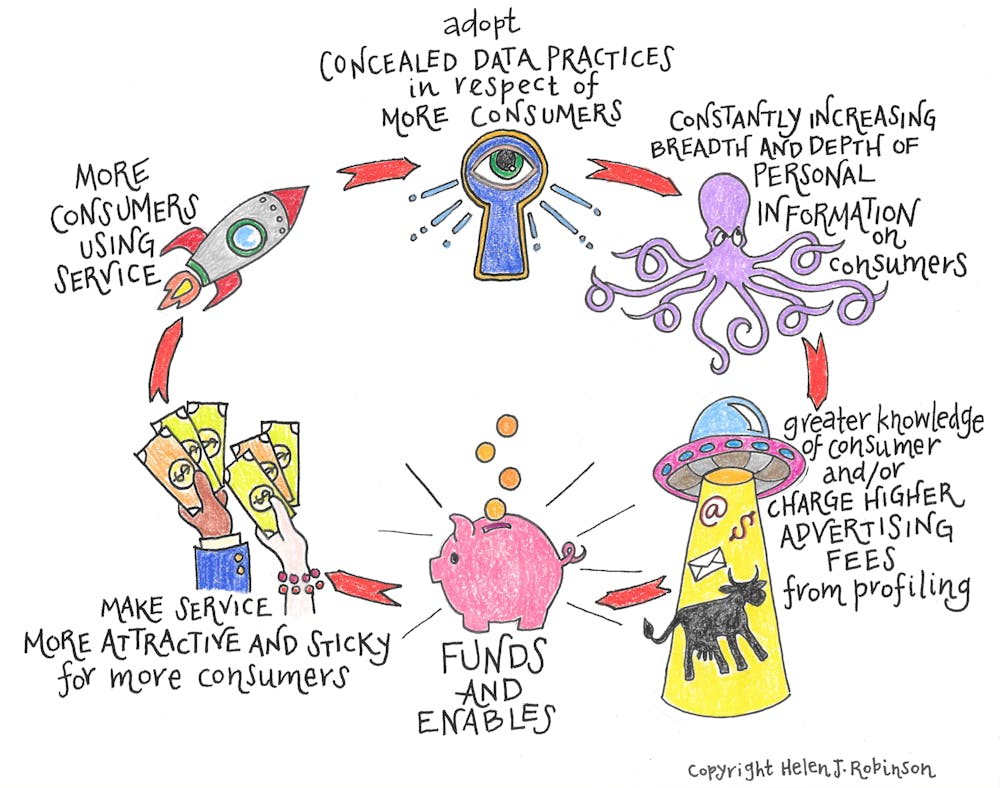 adopt
CONCEALED DATA PRACTICES
in respect of
MORE CONSUMERS
CONSTANTLY INCREASING
BREADTH AND DEPTH OF
PERSONAL
INFORMATION
on
consumers
greater knowledge
of consumer
and/or
CHARGE HIGHER
ADVERTISING
FEES
from profiling
@
$
FUNDS
AND
ENABLES
MAKE SERVICE
MORE ATTRACTIVE AND STICKY
for more consumers
$
$
$
$
$
MORE
CONSUMERS
USING
SERVICE
Copyright Helen J. Robinson